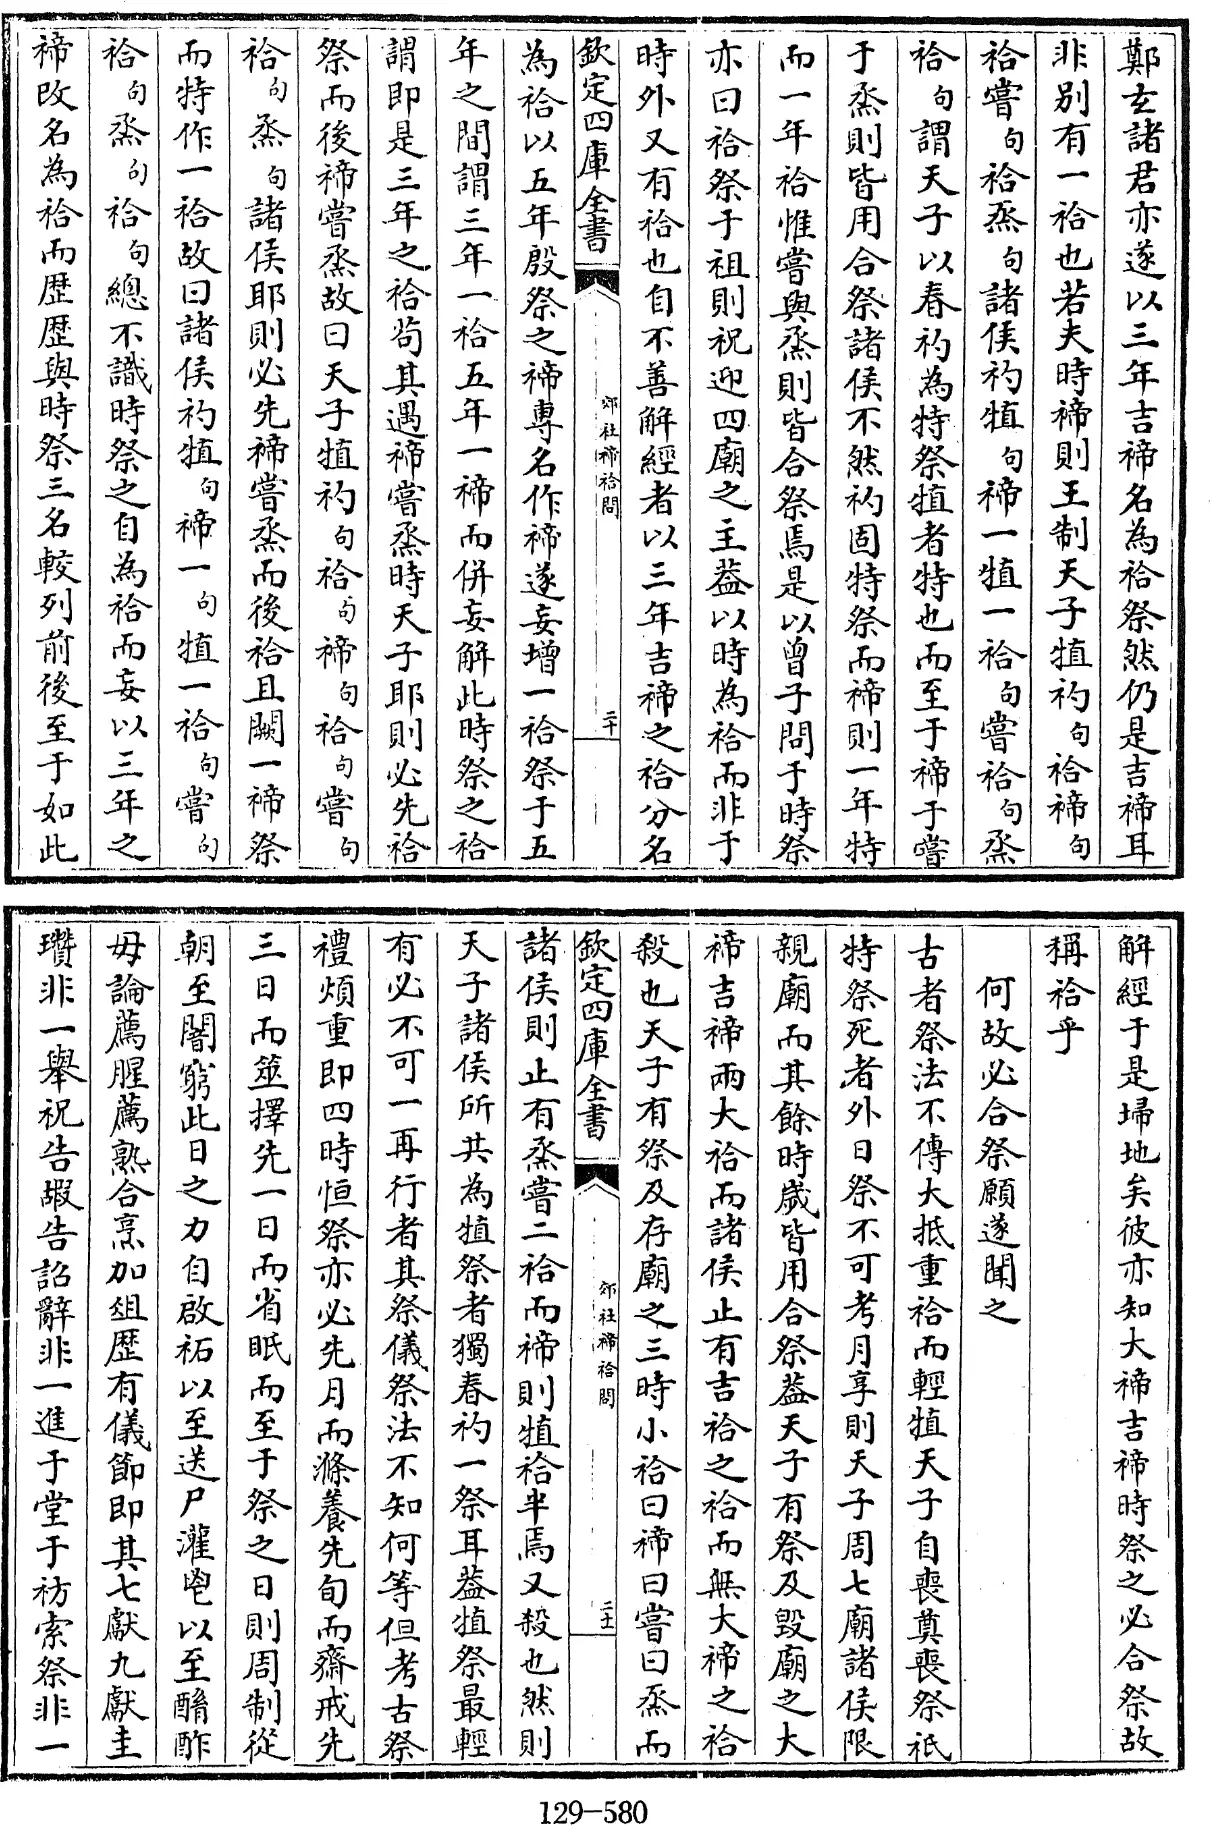 鄭玄諸君亦遂以三年吉禘名為祫祭然仍是吉禘耳
非别有一祫也若夫時禘則王制天子犆礿句祫禘句
祫嘗句祫烝句諸侯礿犆句禘一犆一祫句嘗祫句烝
祫句謂天子以春礿為特祭犆者特也而至于禘于嘗
于烝則皆用合祭諸侯不然礿固特祭而禘則一年特
而一年祫惟嘗與烝則皆合祭焉是以曾子問于時祭
亦曰祫祭于祖則祝迎四廟之主葢以時為祫而非于
時外又有祫也自不善解經者以三年吉禘之祫分名
欽定四庫全書
郊社禘祫問
二十
為祫以五年殷祭之禘專名作禘遂妄增一祫祭于五
年之間謂三年一祫五年一禘而併妄解此時祭之祫
謂即是三年之祫茍其遇禘嘗烝時天子耶則必先祫
祭而後禘嘗烝故曰天子犆礿句祫句禘句祫句嘗句
祫句烝句諸侯耶則必先禘嘗烝而後祫且闕一禘祭
而特作一祫故曰諸侯礿犆句禘一句犆一祫句嘗句
祫句烝句祫句總不識時祭之自為祫而妄以三年之
禘改名為祫而歴歴與時祭三名較列前後至于如此
解經于是埽地矣彼亦知大禘吉禘時祭之必合祭故
稱祫乎
何故必合祭願遂聞之
古者祭法不傳大抵重祫而輕犆天子自喪奠喪祭祇
特祭死者外日祭不可考月享則天子周七廟諸侯限
親廟而其餘時歲皆用合祭葢天子有祭及毀廟之大
禘吉禘兩大祫而諸侯止有吉祫之祫而無大禘之祫
殺也天子有祭及存廟之三時小祫曰禘曰嘗曰烝而
欽定四庫全書
郊社禘祫問
二十一
諸侯則止有烝嘗二祫而禘則犆祫半焉又殺也然則
天子諸侯所共為犆祭者獨春礿一祭耳葢犆祭最輕
有必不可一再行者其祭儀祭法不知何等但考古祭
禮煩重即四時恒祭亦必先月而滌養先旬而齋戒先
三日而筮擇先一日而省眡而至于祭之日則周制從
朝至闇窮此日之力自啟祏以至送尸灌鬯以至酳酢
毋論薦腥薦熟合烹加俎歴有儀節即其七獻九獻圭
瓚非一舉祝告嘏告詔辭非一進于堂于祊索祭非一
129-580